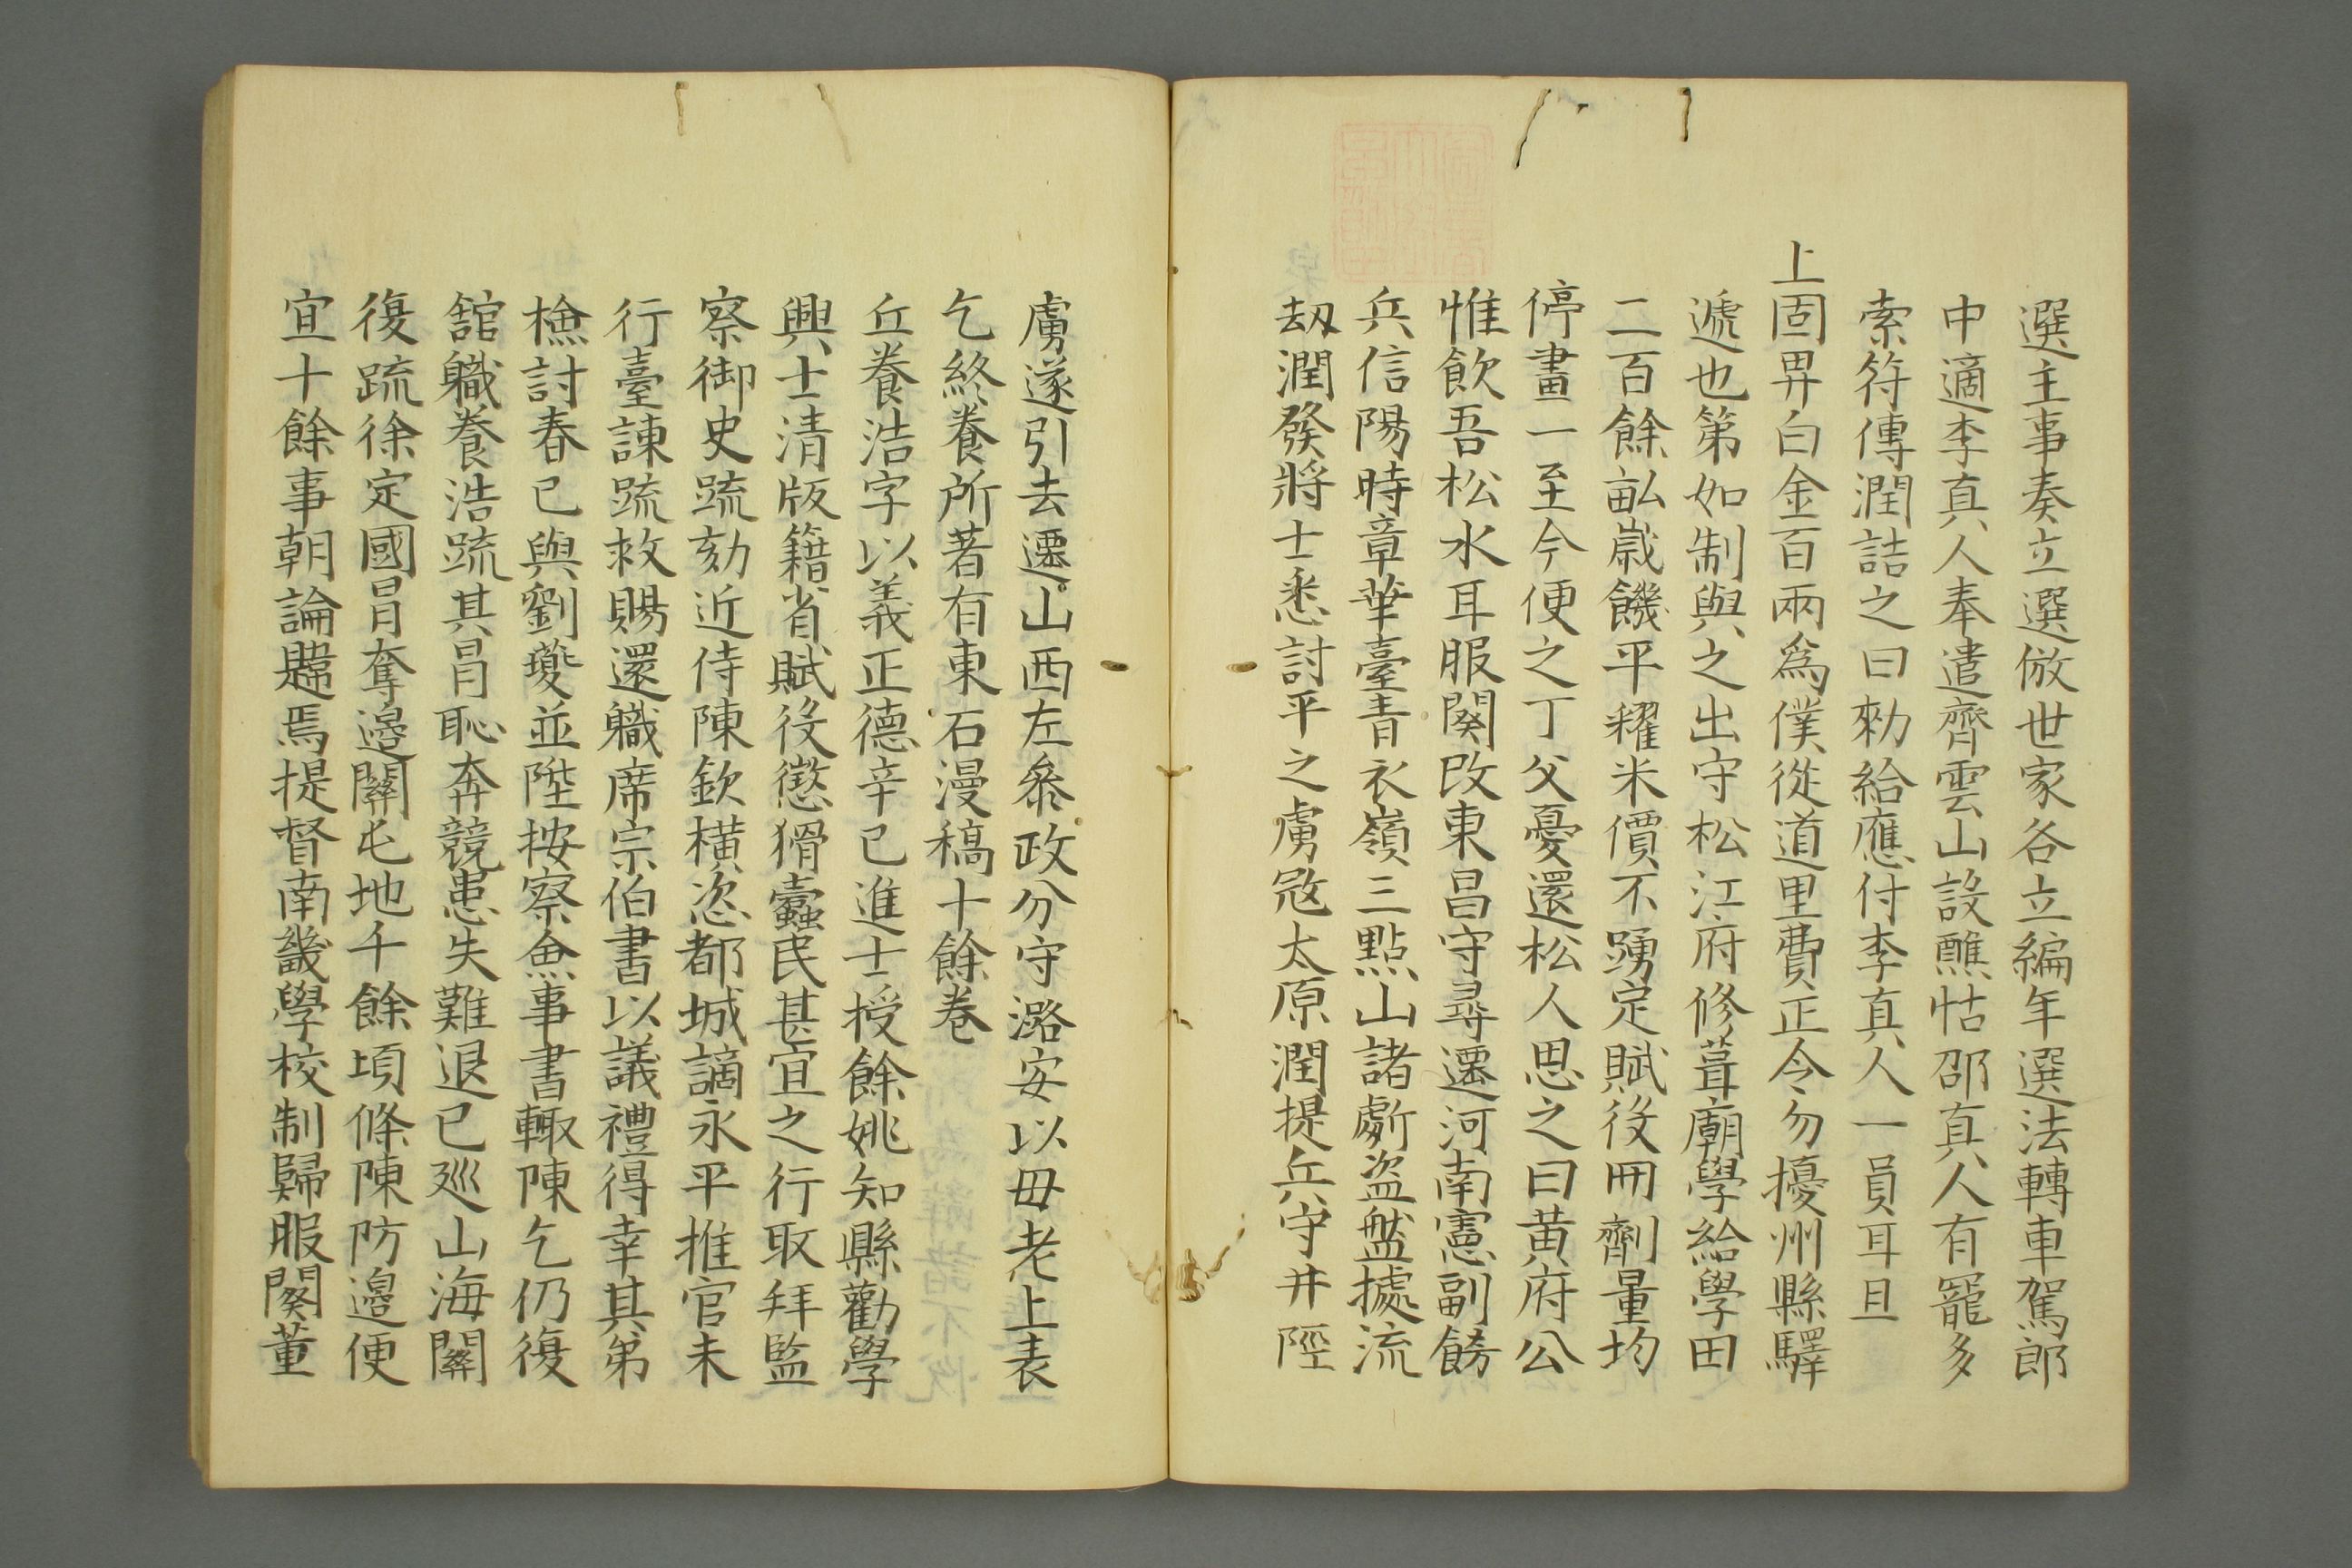 選主事奏立選倣世家各立編年選法轉車駕郎
中適李真人奉遣齊雲山設醮怙邵真人有寵多
索符傳潤詰之曰勑給應付李真人一員耳且
上固畀白金百兩為僕從道里費正令勿擾州縣驛
遞也第如制與之出守松江府修葺廟學給學田
二百餘畆嵗饑平糶米價不踴定賦役冊劑量均
停畫一至今便之丁父憂還松人思之曰黄府公
惟飲吾松水耳服闋改東昌守尋遷河南憲副餝
兵信陽時章華臺青衣嶺三點山諸劇盗盤據流
刼潤發將士悉討平之虜宼太原潤提兵守井陘
虜遂引去遷山西左叅政分守潞安以毋老上表
乞終養所著有東石漫稿十餘卷
丘養浩字以義正德辛巳進士授餘姚知縣勸學
興士清版籍省賦役懲猾蠧民甚宜之行取拜監
察御史疏劾近侍陳欽横恣都城謫永平推官未
行臺諫疏救賜還職席宗伯書以議禮得幸其弟
檢討春已與劉夔並陞按察僉事書輙陳乞仍復
舘職養浩疏其冐恥奔競患失難退已廵山海關
復疏徐定國冐奪邉關屯地千餘頃條陳防邉便
宜十餘事朝論韙焉提督南畿學校制歸服闋董